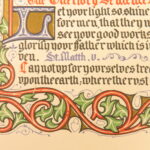 Let your light so shine
fore men, that they m
see your good works
glorify your Father which is i
ven. St. Matth. v.
Lay not up for yourselves trea
upon the earth, where the rust